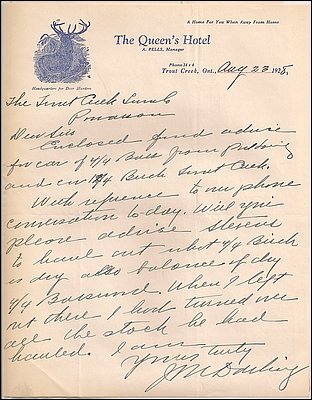 A Home For You When Away From Home
The Queen's Hotel
A. PELLS, Manager
Headquarters for Deer Hunters
Phone 24 r 4
Trout Creek, Ont., Aug 23 1928
The Trout Creek Lumb
Dear Sirs
Enclosed find advise
for car of 4/4 Bass from
and car 4/4 Birch Trout Creek.
With refrence to our phone
conversation to-day. Will you
please advise Stevens
to haul out what 4/4 Birch
is dry also balance of dry
4/4 Basswood. When I left
out there I had turned over
all the stock he had
hauled. I am
Yours truly